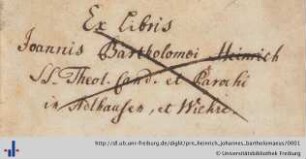 Ex Libris
Joannis Bartholomei Heinrich
SS. Theol. Cand. et Parochi
in Adlhausen, et Wickre.
http://dl.ub.uni-freiburg.de/diglit/prm_heinrich_johannes_bartholomaeus/0001
© Universitätsbibliothek Freiburg